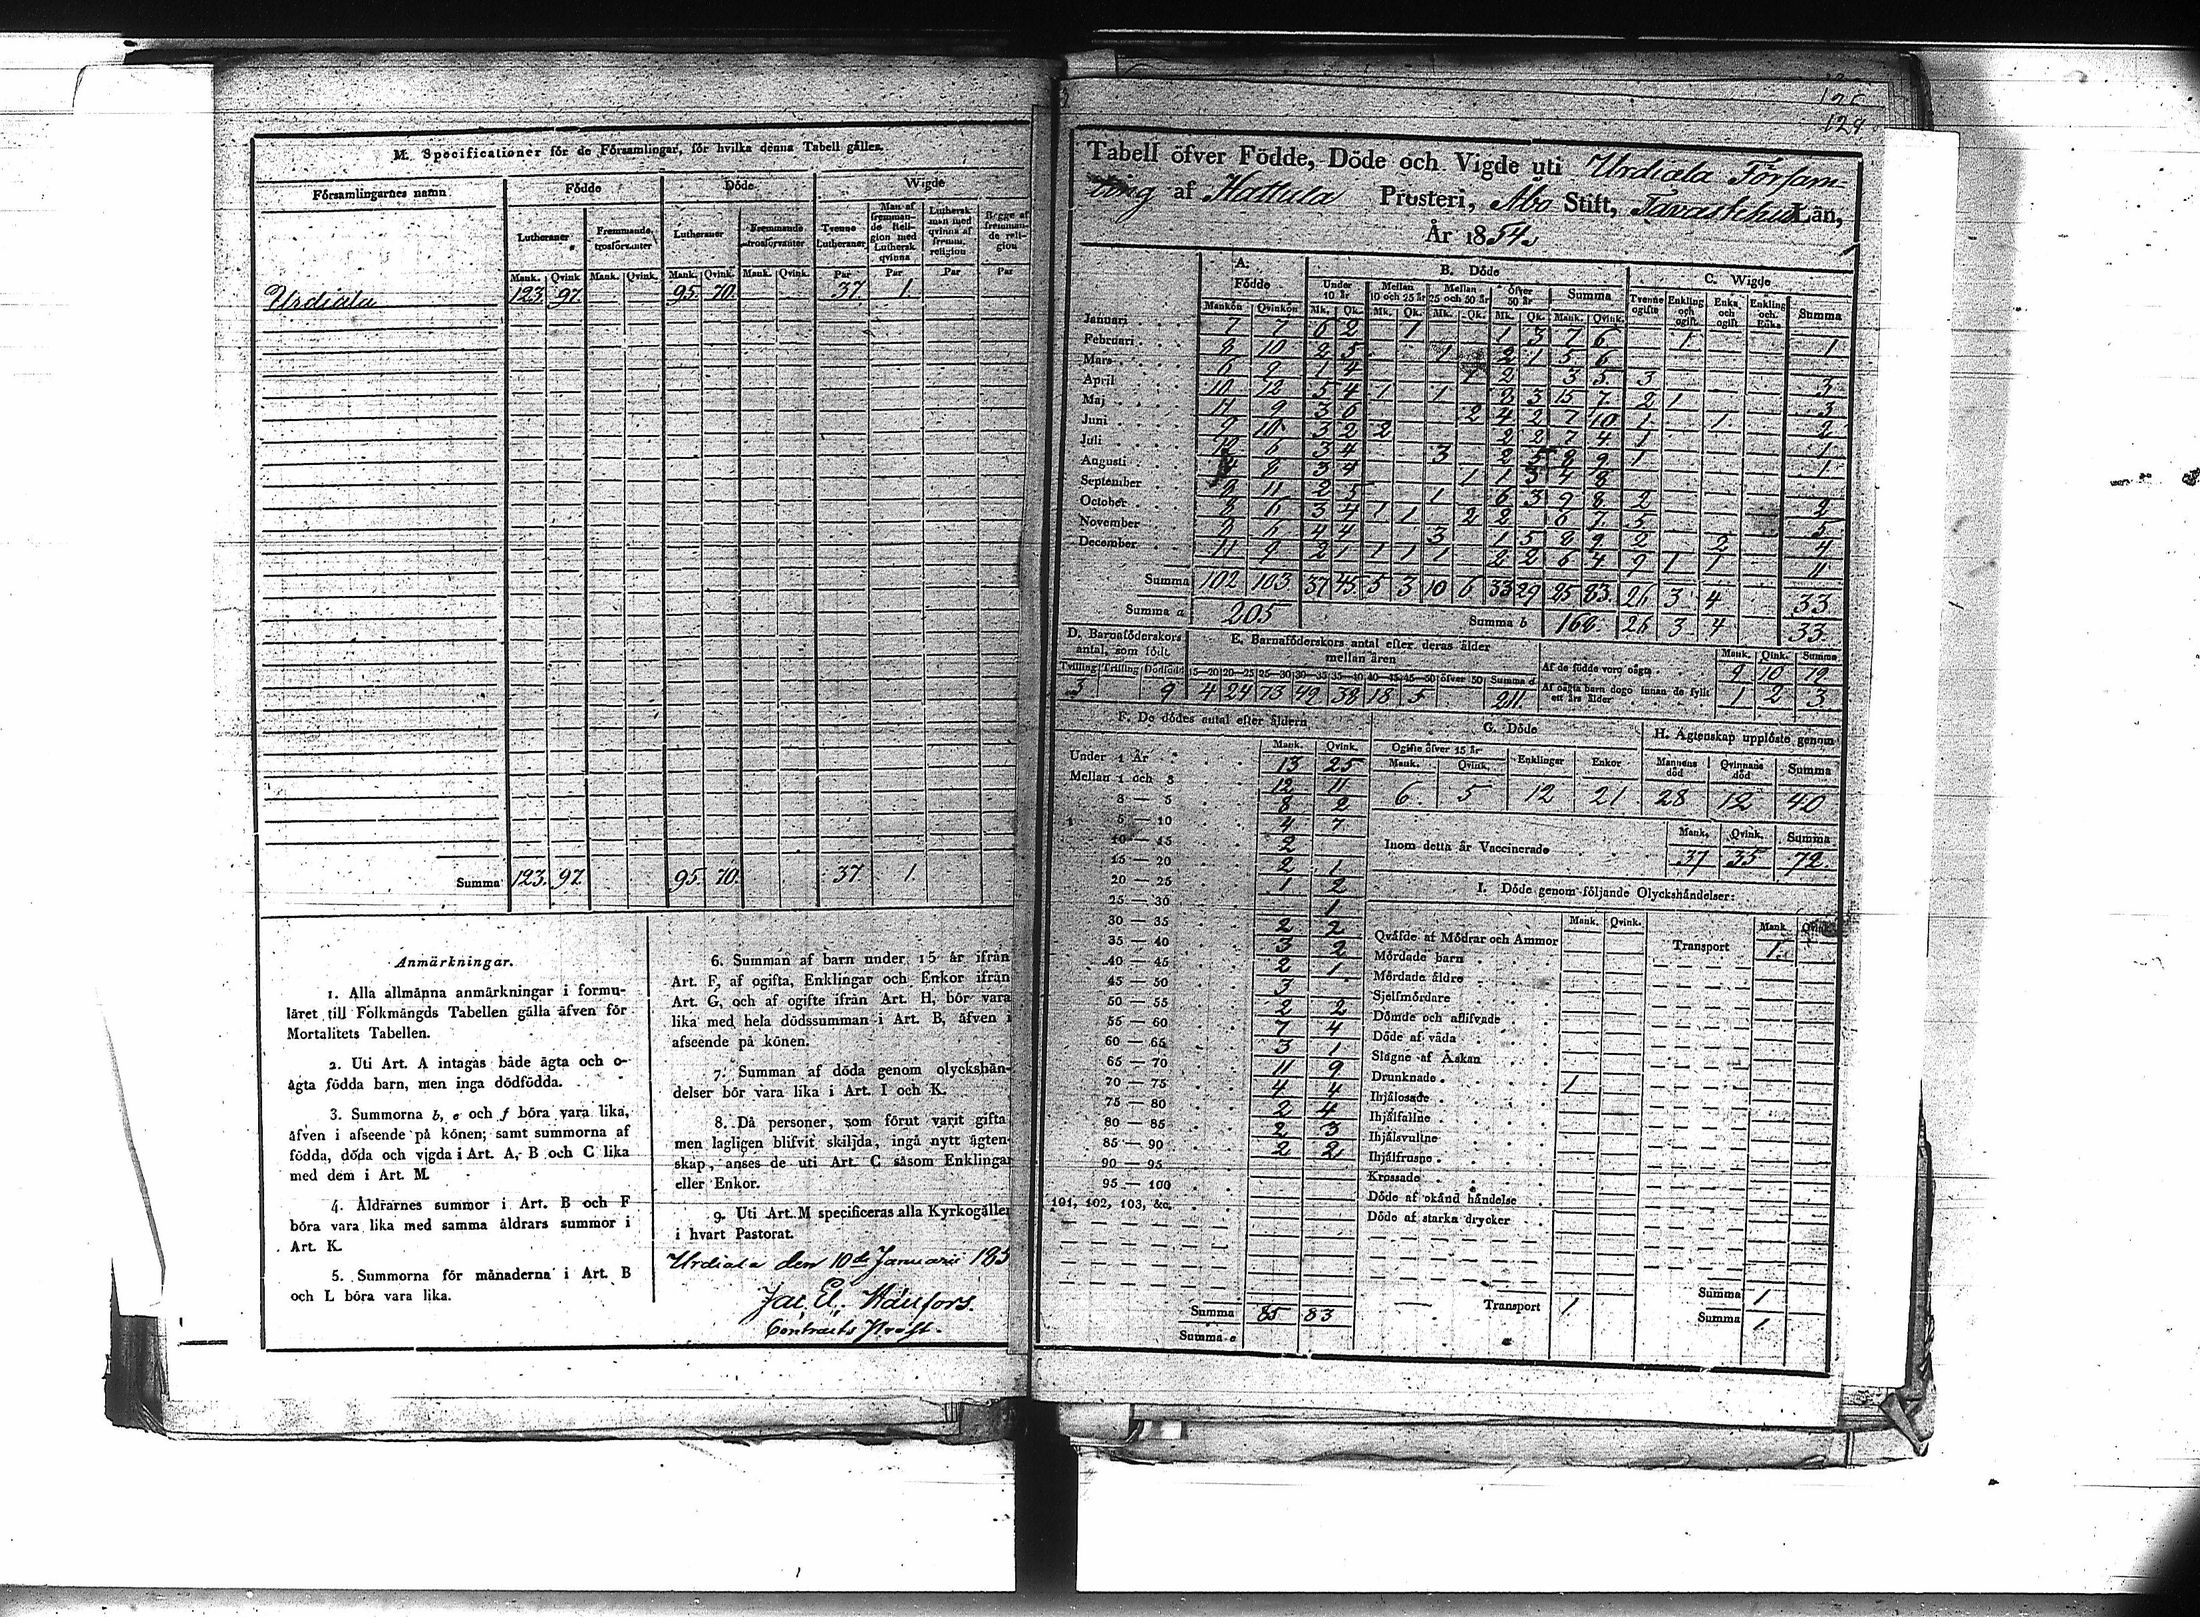 M. Specificationer för de Församlingar, för hvilka denna Tabell gäller.
Församlingarnes namn
Födde
Döde
Wigde
Lutheraner
Fremmande trosförvanter
Lutheraner
Fremmande trosförvanter
Tvenne Lutheraner
Man af fremmande Religion med Luthersk qvinna
Luthersk man med qvinna af fremm. religion
Begge af fremmande religion
Mank. Qvink Mank. Qvink. Mank. Qvink. Mank. Qvink. Par Par Par Par
Urdiala 123. 97. 95. 70. 37. 1.
Summa 123. 97. 95. 70. 37. 1.
Anmärkningar.
1. Alla allmänna anmärkningar i formu-
läret till Folkmängds Tabellen gälla äfven för
Mortalitets Tabellen.
2. Uti Art. A intagas både ägta och o-
ägta födda barn, men inga dödfödda.
3. Summorna b, e och f böra vara lika,
äfven i afseende på könen; samt summorna af
födda, döda och vigda i Art. A, B och C lika
med dem i Art. M.
4. Åldrarnes summor i Art. B och F
böra vara lika med samma åldrars summor i
Art. K.
5. Summorna för månaderna i Art. B
och L böra vara lika.
6. Summan af barn under 15 år ifrån
Art. F, af ogifta, Enklingar och Enkor ifrån
Art. G, och af ogifte ifrån Art. H, bör vara
lika med hela dödssumman i Art. B, äfven i
afseende på könen.
7. Summan af döda genom olyckshän-
delser bör vara lika i Art. I och K.
8. Då personer, som förut varit gifta
men lagligen blifvit skiljda, ingå nytt ägten-
skap, anses de uti Art. C såsom Enklingar
eller Enkor.
9. Uti Art. M specificeras alla Kyrkogäller
i hvart Pastorat.
Urdiala den 10de Januarii 185
Contracts Prost.
129
Tabell öfver Födde, Döde och Vigde uti Urdiala Församling
af Hattula Prosteri, Åbo Stift, Tavastehus Län,
År 1854.
A. Födde
B. Döde
C. Wigde
Under 10 år
Mellan 10 och 25 år
Mellan 25 och 50 år
öfver 50 år
Summa
Tvenne ogifte
Enkling och ogift
Enka och ogift
Enkling och Enka
Summa
Mankön Qvinkön Mk. Qk. Mk. Qk. Mk. Qk. Mk. Qk. Mank. Qvink.
Januari 7 7 6 2 1 1 3 7 6 1 1
Februari 8 10 2 5 1 2 1 5 6
Mars 1 4 1 2 3 5 3 3
April 10 12 5 4 1 1 2 3 15 7 2 1 3
Maj 11 9 3 6 2 4 2 7 10 1 1 2
Juni 9 10 3 2 2 2 2 7 4 1 1
Juli 6 3 4 3 2 5 8 9 1 1
Augusti 8 3 4 1 1 3 4 8
September 9 11 2 5 1 6 3 9 8 2 2
October 8 6 3 4 1 1 2 2 6 7 5 5
November 9 5 4 4 3 1 5 8 9 2 2 4
December 11 2 1 1 1 1 2 2 6 4 9 1 1 11
Summa 102 103 37 45 5 3 10 6 33 29 25 83 26 3 4 33
Summa a 205 Summa b 168 26 3 4 33
D. Barnaföderskors antal, som födt
E. Barnaföderskors antal efter deras ålder mellan åren
Tvilling Trilling Dödfödt 15—20 20—25 25—30 30—35 35—40 40—45 45—50 öfver 50 Summa d
3 9 4 24 73 49 38 18 5 211.
Mank. Qink. Summa
Af de födde voro oägta 9 10 19
Af oägta barn dogo innan de fyllt ett års ålder 1 2 3
F. De dödes antal efter åldern
Mank. Qvink.
Under 1 År 13 25
Mellan 1 och 3 12 11
3 — 5 8 2
5 — 10 4 7
10 — 15 2
15 — 20 2 1
20 — 25 1 2
25 — 30 1
30 — 35 2 2
35 — 40 3 2
40 — 45 2 1
45 — 50 3
50 — 55 2 2
55 — 60 7 4
60 — 65 3 1
65 — 70 11 9
70 — 75 4 4
75 — 80 2 4
80 — 85 2 3
85 — 90 2 2
90 — 95
95 — 100
101, 102, 103, &c.
Summa 85 83
Summa e
G. Döde
Ogifte öfver 15 år
Mank. Qvink. Enklingar Enkor
6 5 12 21
H. Ägtenskap upplöste genom
Mannens död Qvinnans död Summa
28 12 40
Mank. Qvink. Summa
Inom detta år Vaccinerade 37 35 72
I. Döde genom följande Olyckshändelser:
Mank. Qvink. Mank Qvink
Qväfde af Mödrar och Ammor
Mördade barn
Mördade äldre
Sjelfmördare
Dömde och aflifvade
Döde af våda
Slagne af Åskan
Drunknade 1
Ihjälosade
Ihjälfallne
Ihjälsvultne
Ihjälfrusne
Krossade
Döde af okänd händelse
Döde af starka drycker
Transport 1.
Transport 1.
Summa 1
Summa 1.